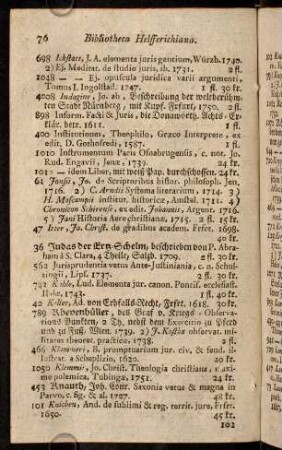 76 Bibliotheca Helfferichiana.
698 Ickstatt, J. A. elementa juris gentium, Würzb. 1740.
2) Ej. Meditat. de studio juris, ib. 1731. 2 fl.
1048 — — Ej. opuscula juridica varii argumenti,
Tomus I. Ingolstad. 1747. 1 fl. 30 kr.
4008 Indagine, Jo. ab, Beschreibung der weltberühm-
ten Stadt Nürnberg, mit Kupf. Erfurt, 1750. 2 fl.
898 Inform. Facti & Juris, die Donawörth. Achts-Er-
klär. betr. 1611. 1 fl.
400 Institutiones, Theophilo, Græco Interprete, ex
edit. D. Gothofredi, 1587. 1 fl.
1010 Instrumentum Pacis Osnabrugensis, c. not. Jo.
Rud. Engavii, Jenæ, 1739. 24 kr.
1012 — idem Liber, mit weiß Pap. durchschossen. 24 kr.
61 Jonsii, Jo. de Scriptoribus histor. philosoph. Jen.
1716. 2) C. Arndii Systema literarium, 1714. 3)
H. Mascampii institut. historicæ, Amstel. 1711. 4)
Chronicon Schirense, ex edit. Johannis, Argent. 1716.
5) Jani Historia Aeræ christianæ, 1715. 2 fl. 45 kr.
47 Itter, Jo. Christ. de gradibus academ. Frfef. 1698.
40 kr.
36 Judas der Ertz-Schelm, beschrieben von P. Abra-
ham à S. Clara, 4 Theile, Salzb. 1709. 2 fl. 30 kr.
562 Jurisprudentia vetus Ante-Justinianea, c. n. Schul-
tingii, Lips. 1737. 2 fl. 24 kr.
Lud. Elementa jur. canon. Pontif. ecclesiast.
Halæ, 1743. 1 fl. 30 kr.
42 Ad. von Erbfalls-Recht, Frfet. 1618. 30 kr.
789 Khevenhüller, des Graf v. Kriegs-Observa-
tions Puncten, 2 Th. nebst dem Exercitio zu Pferd
und zu Fuß. Wien. 1739. 2) observat. mili-
tares theoret. practicæ, 1738. 2 fl.
466 B. promptuarium jur. civ. & feud. il-
lustrat. a Scheplizio, 1620. 2 fl.
1050 Klemmii, Jo. Christ. Theologia christiana, axi
ome polemica, Tubingæ, 1751. 24 kr.
453 Knauth, Joh. Conr. Saxonia vetus & magna in
Parvo, c. fig. & al. 1727. 48 kr.
101 And. de sublimi & reg. territ. jure, Frfet.
1650. 45 kr.
102